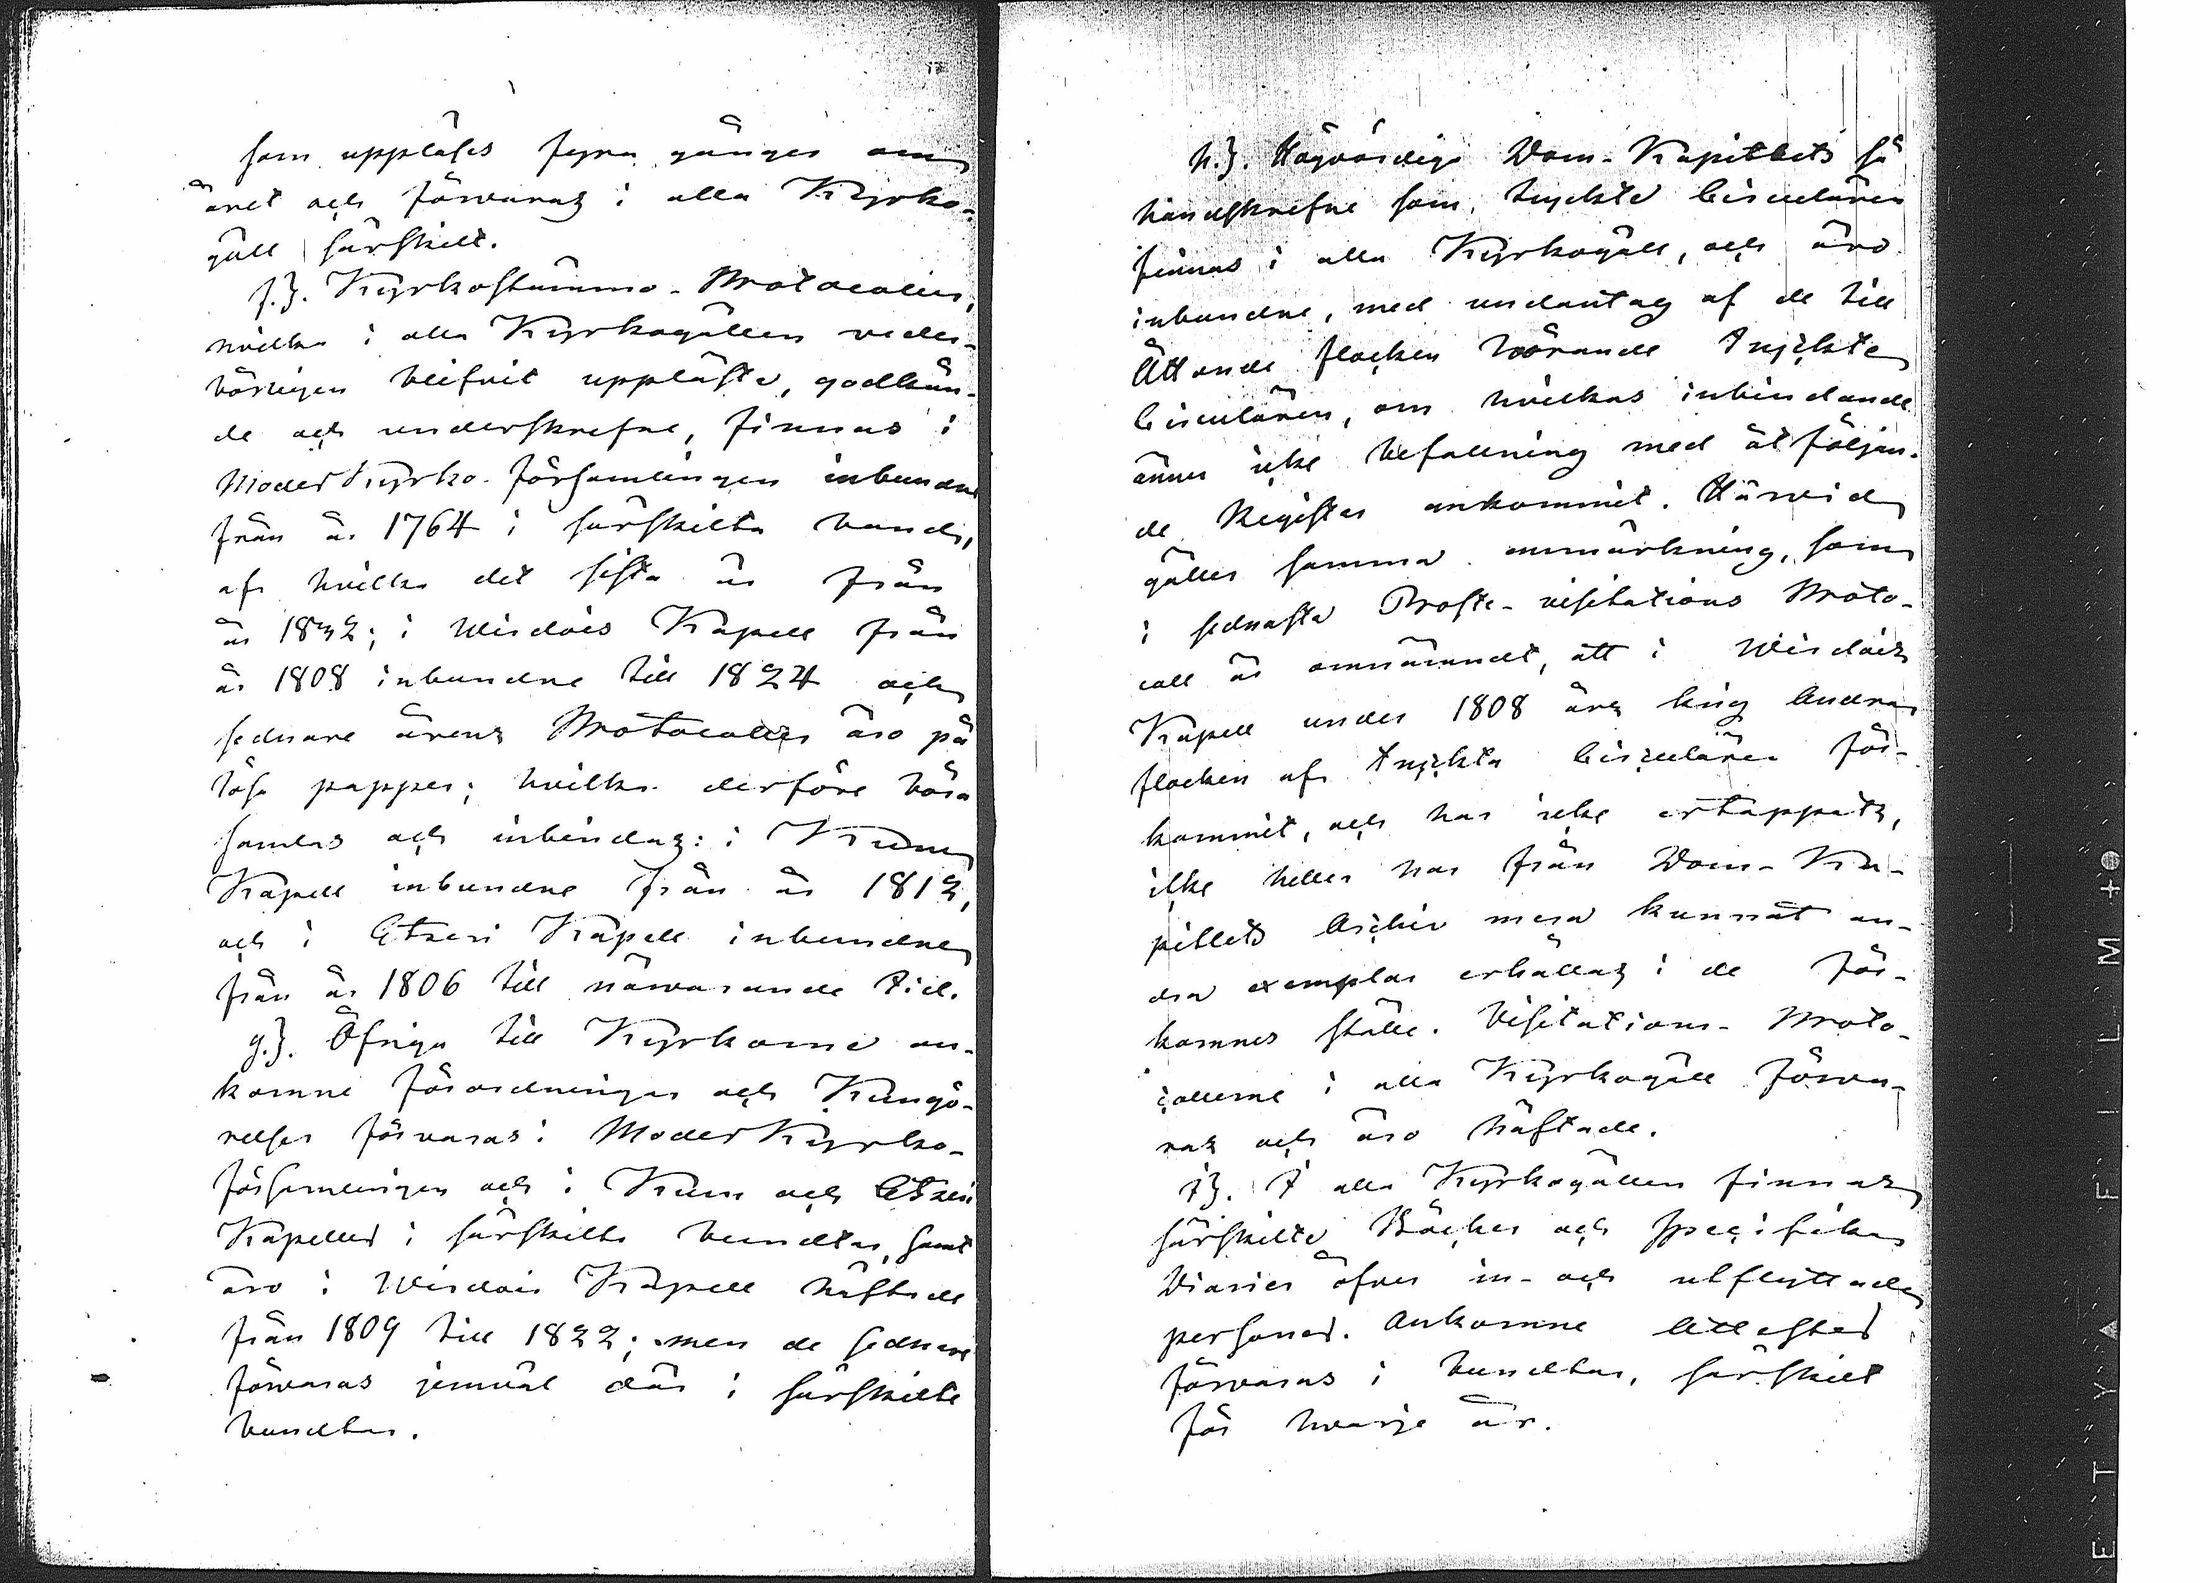 som uppläses fyra gånger om
året och förvaras i alla Kyrko-
gäll särskilt.
f.). Kyrkostämmo-Protocoller,
hvilka i alla Kyrkogällen veder-
börligen blifvit uppläste, godkän-
de och underskrefne, finnas i
ModerKyrko-församlingen inbundne
från år 1764 i särskilta band,
af hvilka det sista är från
år 1832; i Wirdois Kapell från
år 1808 inbundne till 1824 och
sednare årens Protocoller äro på
lösa papper; hvilka derföre böra
samlas och inbindas: i Kuru
Kapell inbundne från år 1812,
och i Etseri Kapell inbundne
från år 1806 till närvarande tid.
g.). Öfriga till Kyrkorne an-
komne förordningar och Kungö-
relser förvaras i ModerKyrko-
församlingen och i Kuru och Etseri
Kapeller i särskilta bundtar, samt
äro i Wirdois Kapell häftade
från 1809 till 1822; men de sednare
förvaras jemväl där i särskilte
bundtar.
h.). Högvördige Dom-Kapitlets så
handskrefne som tryckte Circulärer
finnas i alla Kyrkogäll, och äro
inbundne, med undantag af de till
Åttonde flocken hörande tryckte
Circulären, om hvilkas inbindande
ännu icke befallning med åtföljan-
de Register ankommit. Härvid
gäller samma anmärkning, som
i sednaste Proste-visitations Proto-
coll är omnämndt, att i Wirdois
Kapell under 1808 års krig Andra
flocken af tryckta Circulärer för-
kommit, och har icke ertappats,
icke heller har från Dom-Ka-
pitlets Archiv mera kunnat an-
dra exemplar erhållas i de för-
komnes ställe. Visitations-Proto-
collerne i alla Kyrkogäll förva-
ras och äro häftade.
i). I alla Kyrkogällen finnas
särskilte Böcker och specifika
Diarier öfver in- och utflyttade
personer. Ankomne Attester
förvaras i bundtar, särskilt
för hvarje år.